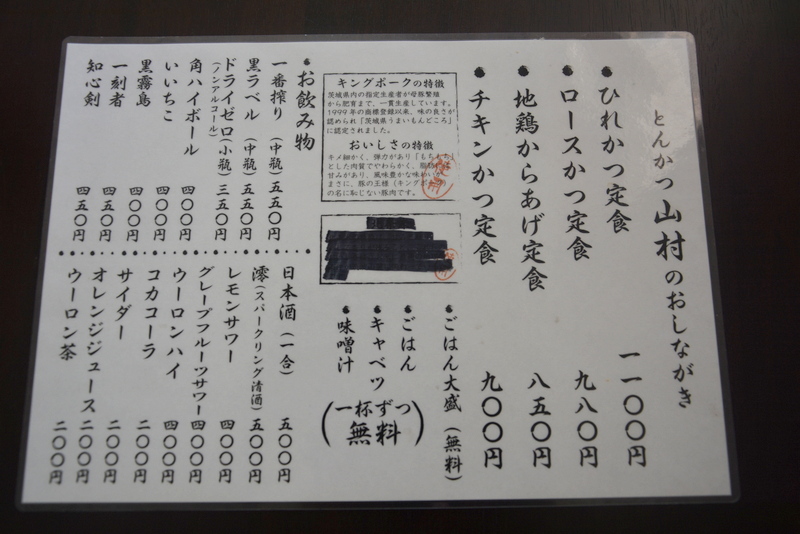 とんかつ山村のおしながき
ひれかつ定食 一一〇〇円
ロースかつ定食 九八〇円
地鶏からあげ定食 八五〇円
チキンかつ定食 九〇〇円
ごはん大盛（無料）
ごはん
キャベツ
味噌汁
（一杯ずつ無料）
キングポークの特徴
茨城県内の指定生産者が母豚繁殖
から肥育まで、一貫生産しています。
1999年の商標登録以来、味の良さが
認められ「茨城県うまいもんどころ」
に認定されました。
おいしさの特徴
キメ細かく、弾力があり「もちもち」
とした肉質でやわらかく、脂肪
甘みがあり、風味豊かな味わい
まさに、豚の王様（キングポ
の名に恥じない豚肉です。
お飲み物
一番搾り（中瓶）五五〇円
黒ラベル（中瓶）五五〇円
ドライゼロ（小瓶）三五〇円
（ノンアルコール）
角ハイボール 四〇〇円
いいちこ 四〇〇円
黒霧島 四〇〇円
一刻者 四五〇円
知心剣 四五〇円
日本酒（一合）五〇〇円
澪（スパークリング清酒）五〇〇円
レモンサワー 四〇〇円
グレープフルーツサワー 四〇〇円
ウーロンハイ 四〇〇円
コカコーラ 二〇〇円
サイダー 二〇〇円
オレンジジュース 二〇〇円
ウーロン茶 二〇〇円